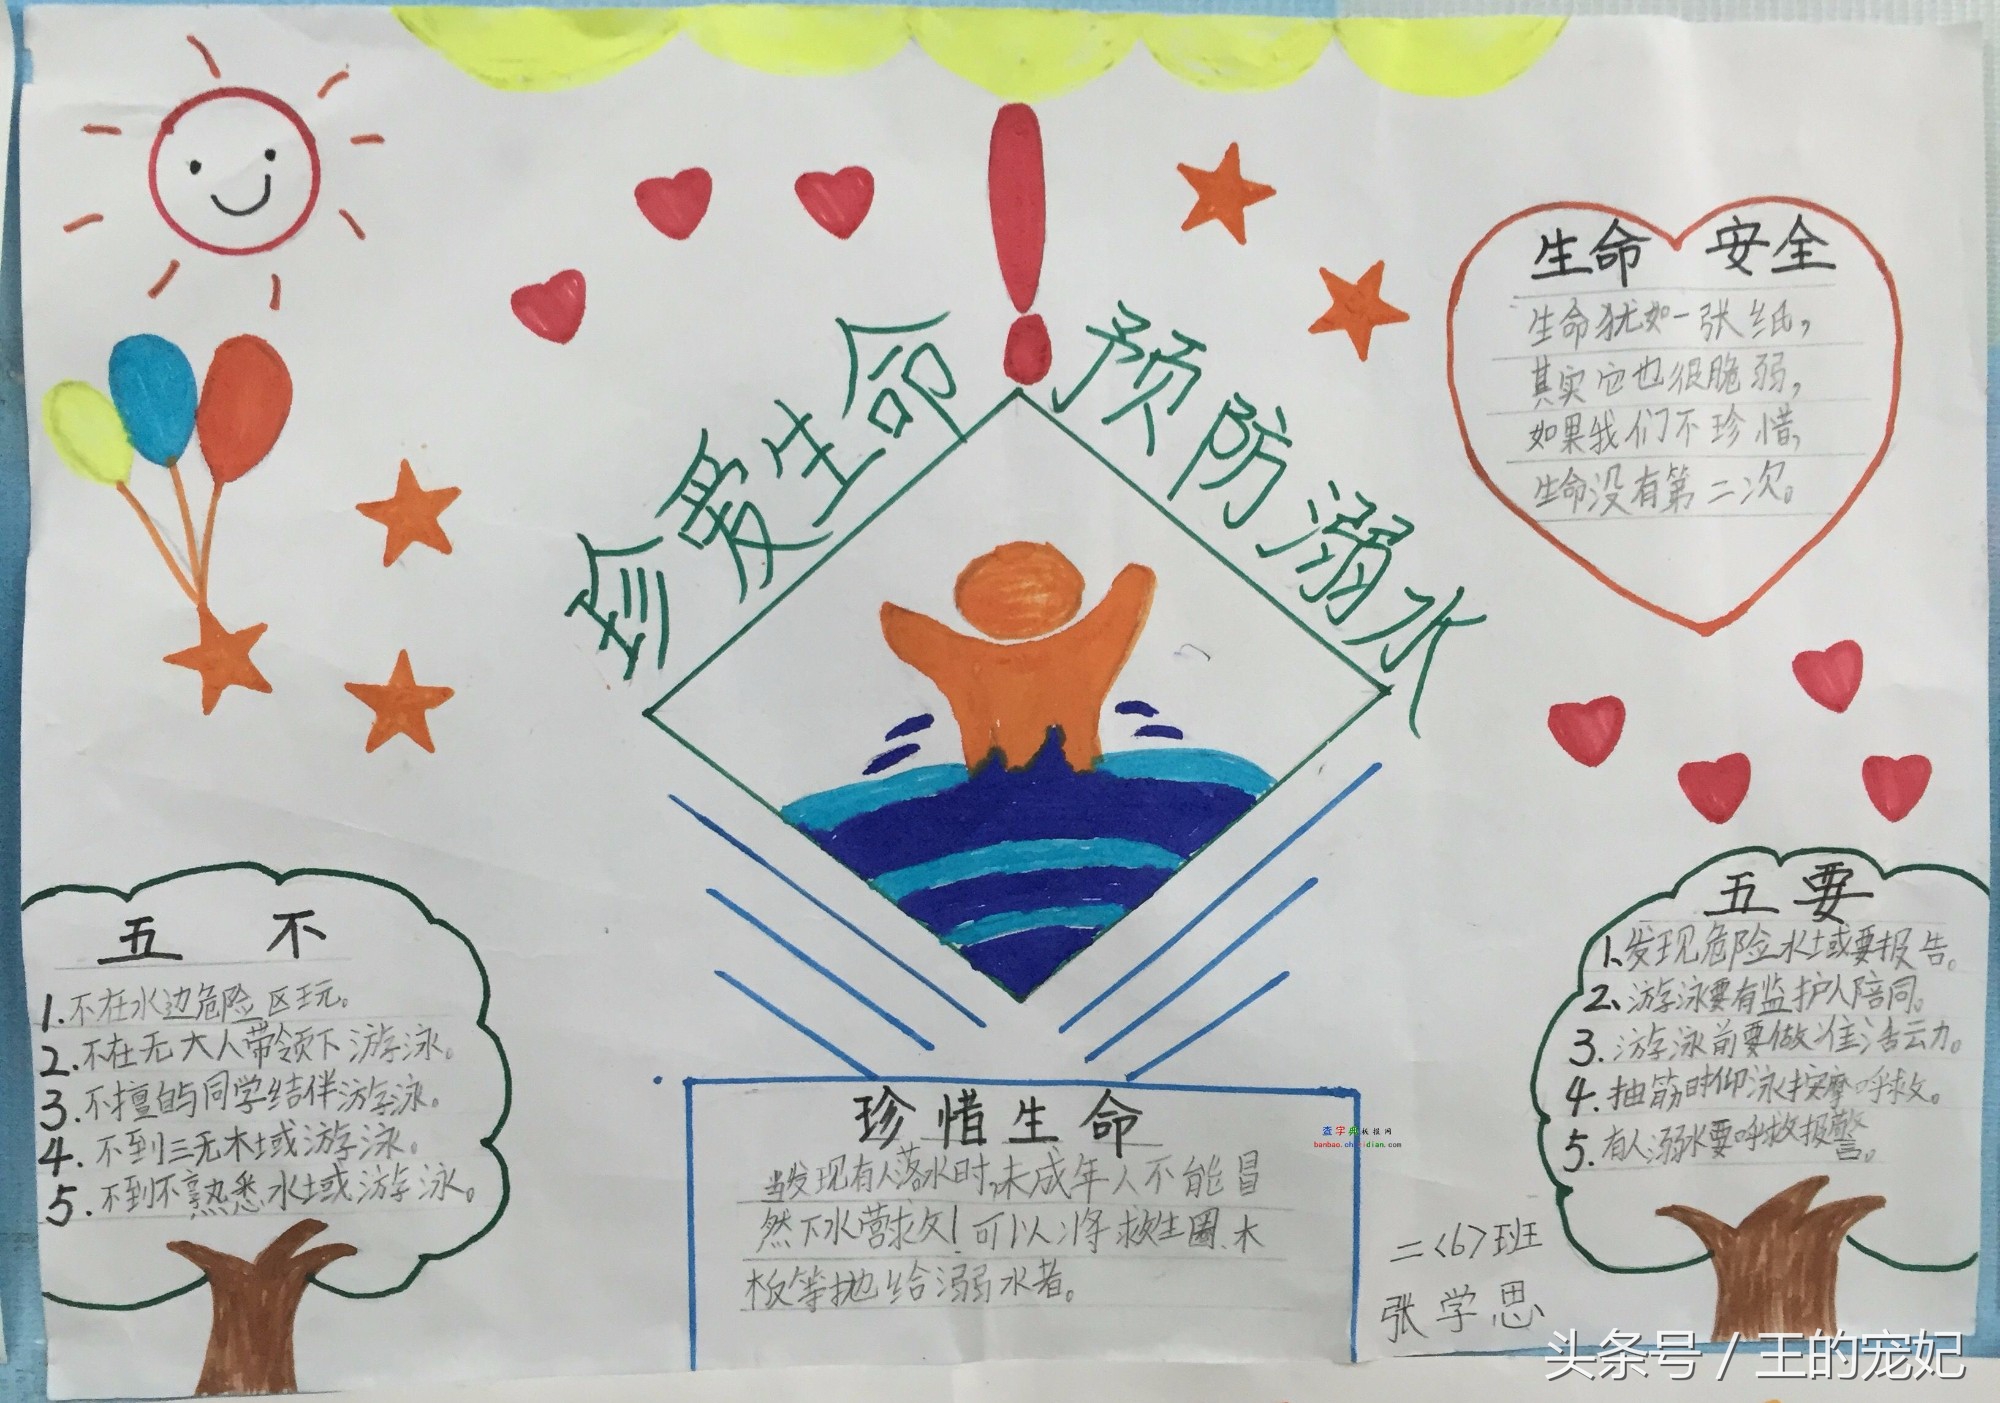 珍爱生命！预防溺水
生命 安全
生命犹如一张纸，
其实它也很脆弱，
如果我们不珍惜，
生命没有第二次。
五 不
1.不在水边危险区玩。
2.不在无大人带领下游泳。
3.不擅自与同学结伴游泳。
4.不到三无木域游泳。
5.不到不熟悉水域游泳。
五要
1、发现危险水域要报告。
2、游泳要有监护人陪同。
3.游泳前要做准活动。
4.抽筋时仰泳按摩呼救。
5.有人溺水要呼救报警。
珍惜生命
当发现有人落水时，未成年人不能冒
然下水营救！可以将救生圈、木
板等抛给溺水者。
二〈6〉班
张学思
查字典板报网
banbao.chazidian.com
头条号 / 王的宠妃